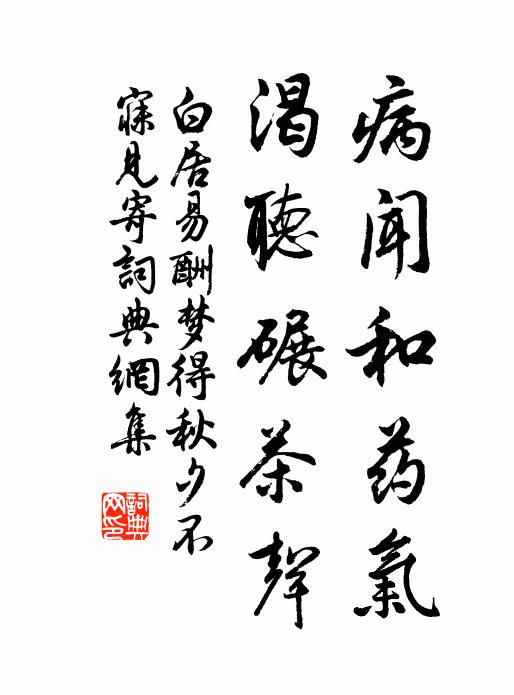 病闻和药氣
渴聽碾茶聲
白居易酬梦得秋夕不
寐見寄詞典網集
詞典
网印